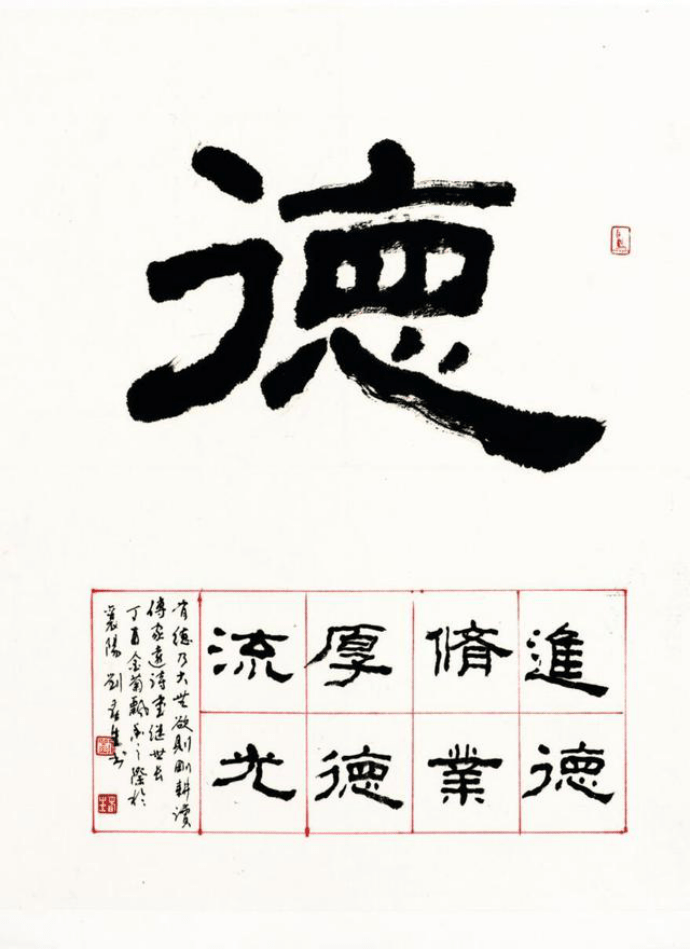 德
進德
脩業
厚德
流光
有德乃大無欲則剛耕讀
傳家遠詩書继世長
丁酉金菊飄香之際於
襄陽劉書